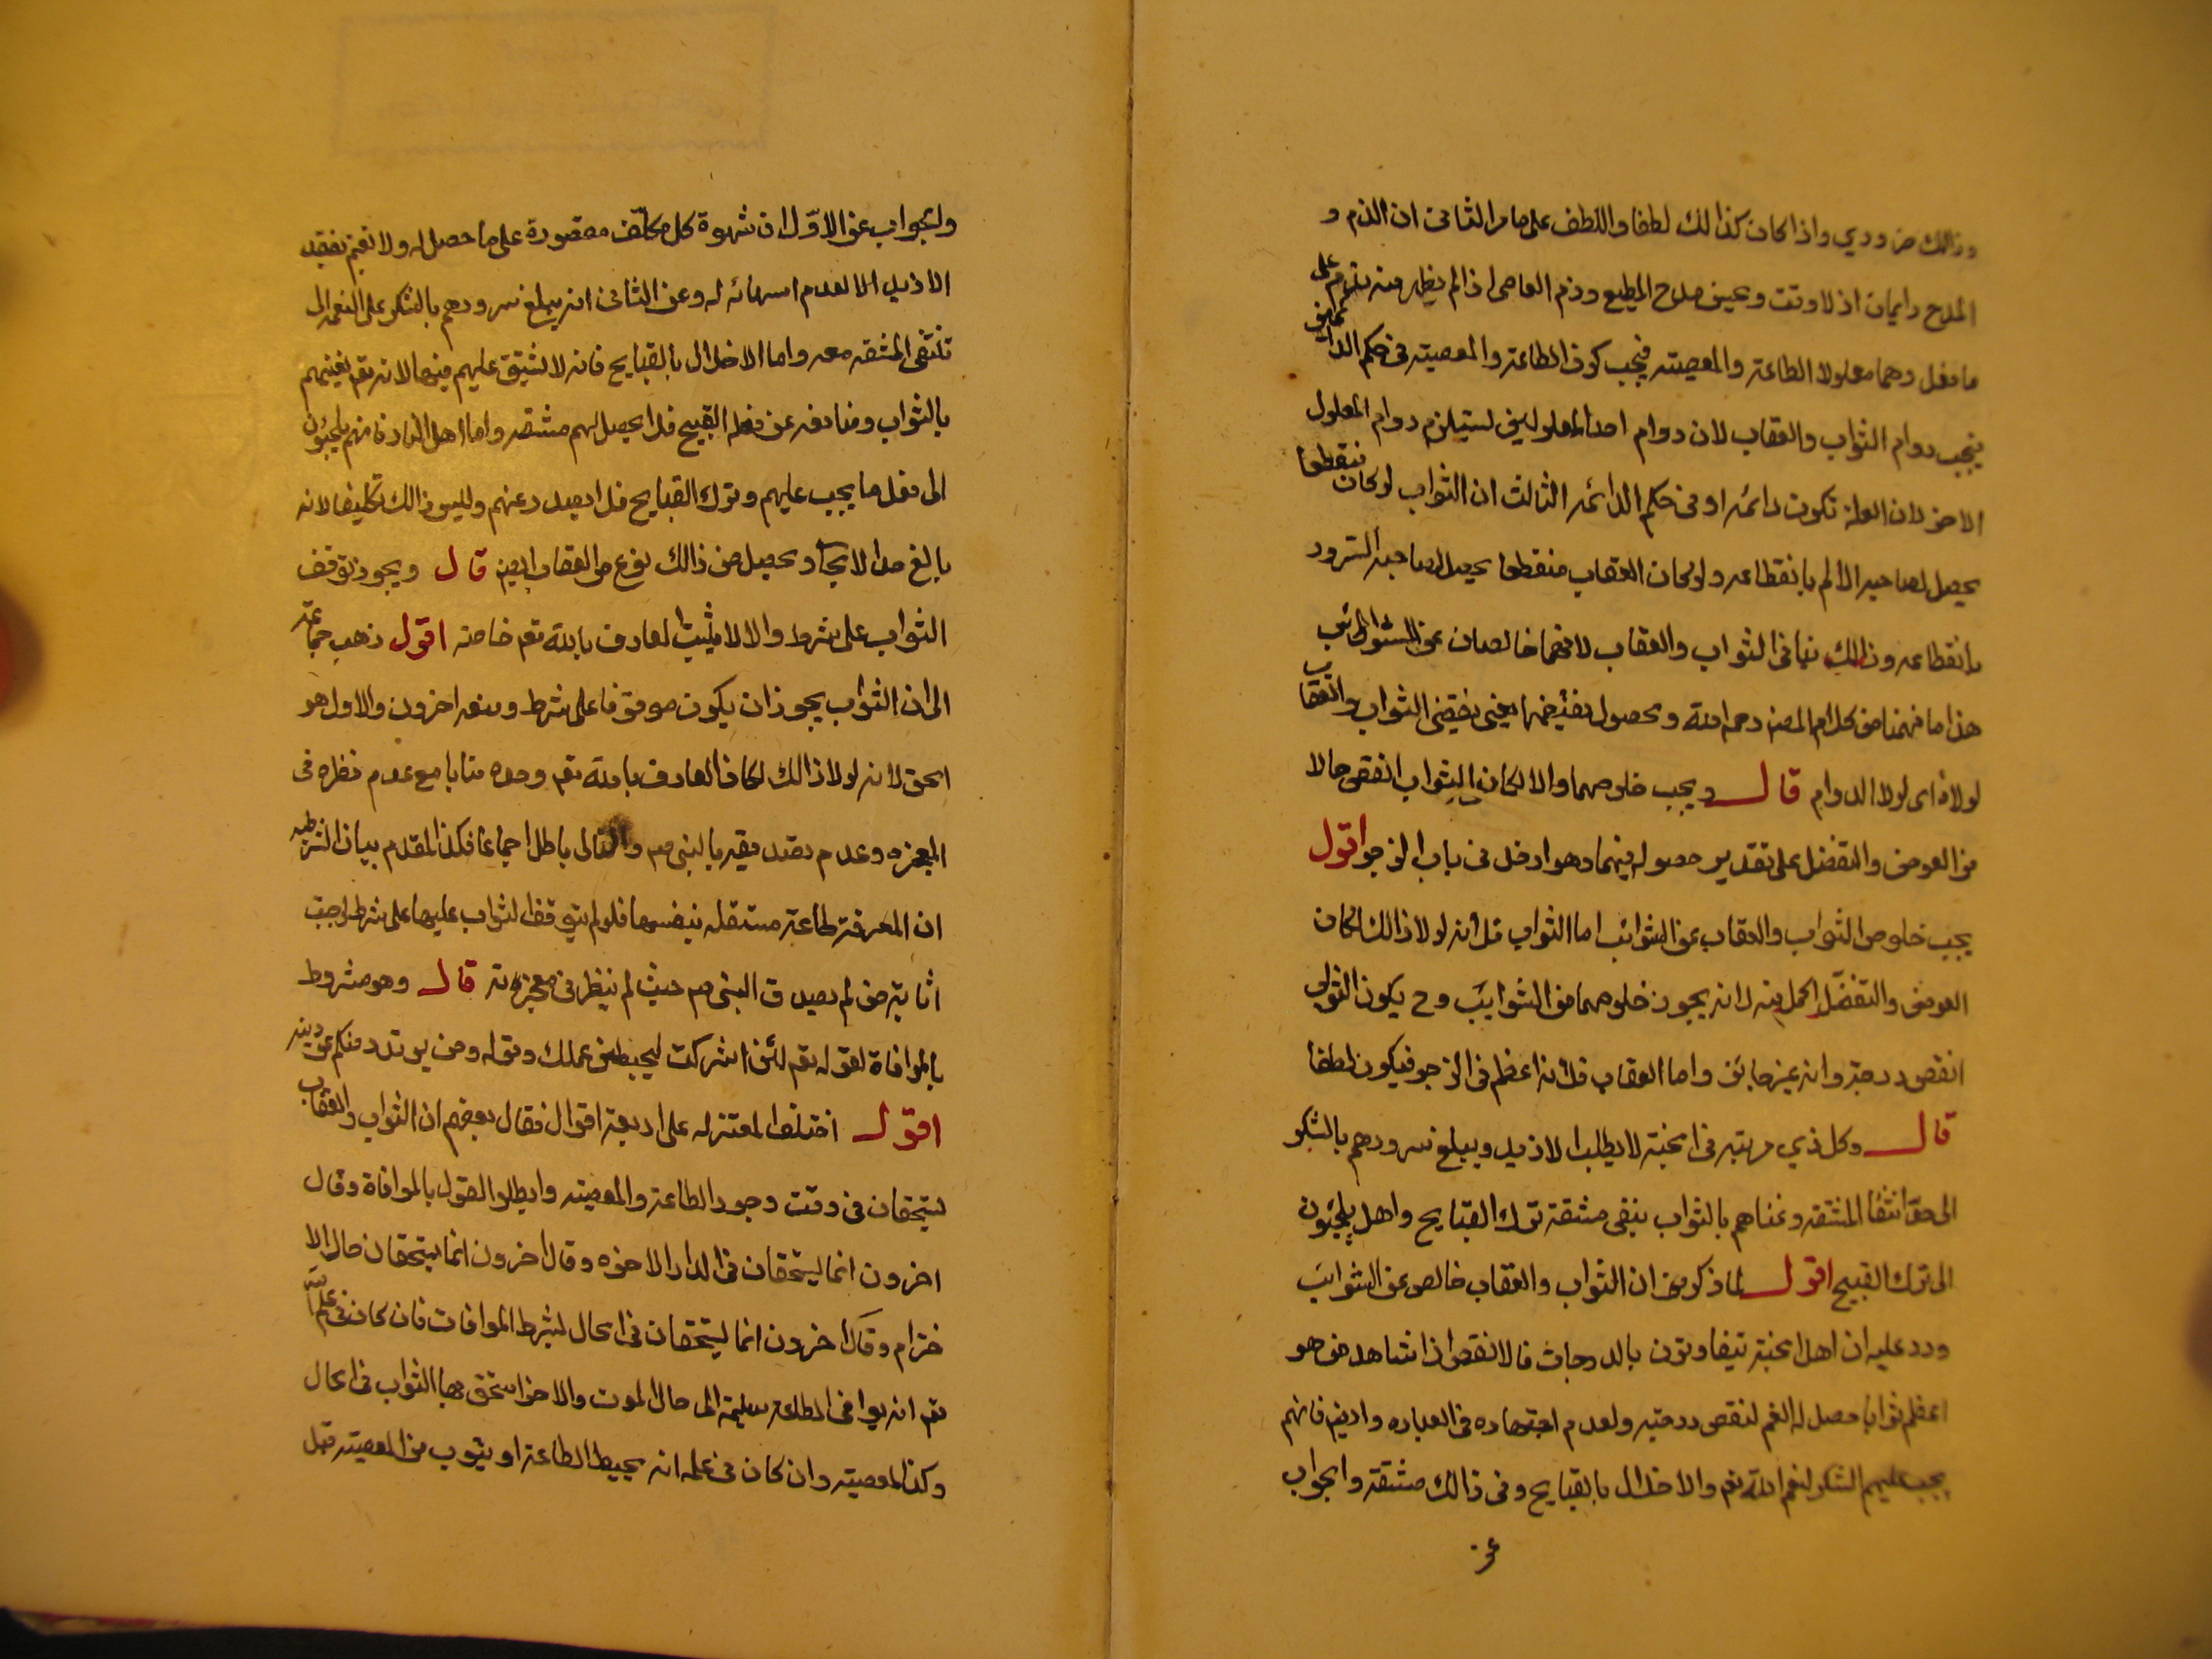 وذالك ضروري واذا كان كذالك لطفا واللطف على ما مر الثانى ان الذم و
المدح دايمان اذ لا وقت وبحسن مدح المطيع وذم العاصى اذا لم يظهر منه ندم على
ما فعل وهما معلولا الطاعة والمعصيته فيجب كون الطاعة والمعصيته فى حكم الدائمتين
فيجب دوام الثواب والعقاب لان دوام احد المعلولين يستلزم دوام المعلول
الاخر لان العلة تكون دائمه او فى حكم الدائمه الثالث ان الثواب لو كان منقطعا
يحصل لصاحبه الالم بانقطاعه ولو كان العقاب منقطعا يحصل لصاحبه السرور
بانقطاعه وذالك ينافى الثواب والعقاب لانهما خالصان عن الشوائب
هذا ما فهمنا من كلام المصنف رحمه الله وحصول نقيضهما يعنى نقيضى الثواب والعقاب
لولاه اى لولا الدوام قال ويجب خلوصهما والا لكان الثواب انقص حالا
من العوض والتفضل على تقدير حصوله فيهما وهو ادخل فى باب الزجر اقول
يجب خلوص الثواب والعقاب عن الشوائب اما الثواب فلانه لولا ذالك لكان
العوض والتفضل اكمل منه لانه يجوز خلوصهما من الشوايب وح يكون الثواب
انقص درجة وانه غير جائز واما العقاب فلانه اعظم فى الزجر فيكون لطفا
قال وكل ذي مرتبه فى الجنة لا يطلب الازيد ويبلغ سرورهم بالشكر
الى حد انتفا المشقه وغناهم بالثواب ينفى مشقة ترك القبايح واهل يلجئون
الى ترك القبيح اقول لما ذكر من ان الثواب والعقاب خالص عن الشوايب
ورد عليه ان اهل الجنة يتفاوتون بالدرجات فالانقص اذا شاهد من هو
اعظم ثوابا حصل له الغم لنقص درجته ولعدم اجتهاده فى العباده وايضا فانهم
يجب عليهم الشكر لنعم الله تعم والاخلال بالقبايح وفى ذالك مشقة والجواب
والجواب عن الاول ان شهوة كل مكلف مقصورة على ما حصل له ولا يغتم بفقد
الازيد الا لعدم اشتهائه له وعن الثانى انه يبلغ سرورهم بالشكر على النعم الى
تنتفى المشقه معه واما الاخلال بالقبايح فانه لا تشق عليهم فيها لانه تعم يغنيهم
بالثواب ومنافعه عن فعله القبيح فلا يحصل لهم مشقه واما اهل النار فانهم يلجئون
الى فعل ما يجب عليهم وترك القبايح فلا يصدر عنهم وليس ذالك تكليفا لانه
بالغ حد الالجاء ويحصل من ذالك نوع من العقاب ايض قال ويجوز توقف
الثواب على شرط والا لاثيب العارف بالله تعم خاصة اقول ذهب جماعة
الى ان الثواب يجوز ان يكون موقوفا على شرط ومنعه اخرون والاول هو
الحق لانه لولا ذالك لكان العارف بالله تعم وحده مثابا مع عدم نظره فى
المعجزه وعدم تصديقه بالنبى ص والتالى باطل اجماعا فكذا المقدم بيان الشرطيه
ان المعرفة طاعة مستقله بنفسها فلو لم يتوقف الثواب عليها على شرط لوجب
اثابة من لم يصدق النبى ص حيث لم ينظر فى معجزته قال وهو مشروط
بالموافاة لقوله تعم لئن اشركت ليحبطن عملك وقوله ومن يرتدد منكم عن دينه
اقول اختلف المعتزله على اربعة اقوال فقال بعضهم ان الثواب والعقاب
يستحقان فى وقت وجود الطاعة والمعصيته وابطلوا القول بالموافاة وقال
اخرون انما يستحقان فى الدار الاخره وقال اخرون انما يستحقان حال الا
خترام وقال اخرون انما يستحقان فى الحال بشرط الموافات فان كان فى علم الله
تعم انه يوافى الطاعة سليمة الى حال الموت والاخر استحق بها الثواب فى الحال
وكذا المعصيته وان كان فى علمه انه يحبط الطاعة او يتوب من المعصيته قبل